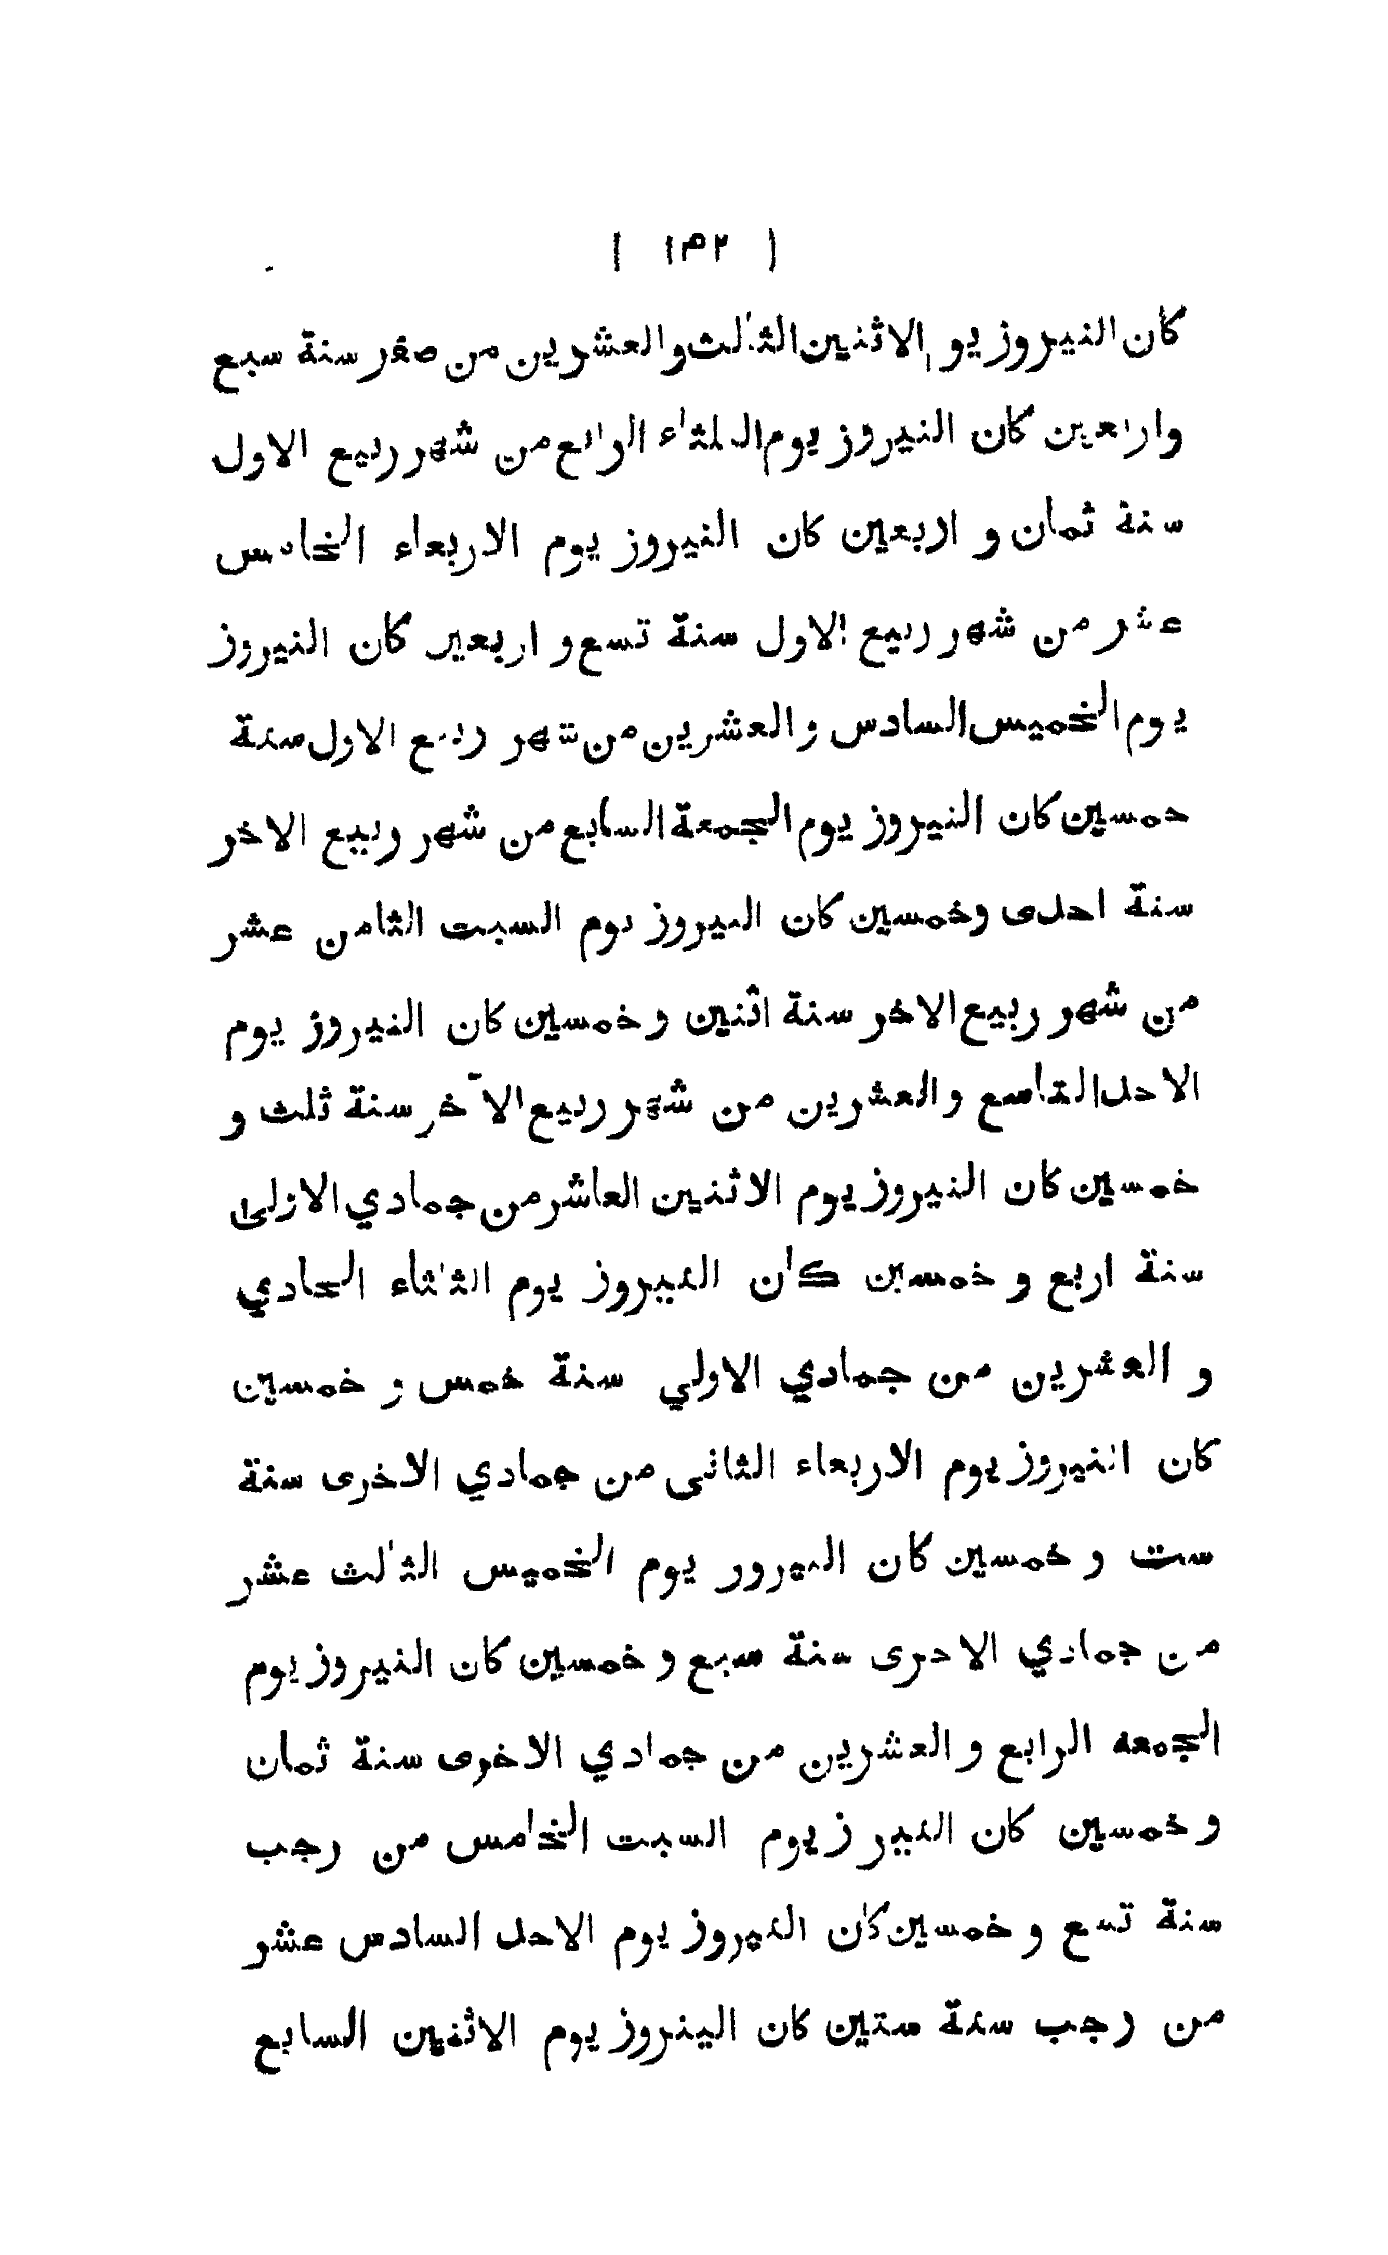 ( ١٣٢ )
كان النيروز يوم الاثنين الثالث والعشرين من صفر سنة سبع
واربعين كان النيروز يوم الثلثاء الرابع من شهر ربيع الاول
سنة ثمان و اربعين كان النيروز يوم الاربعاء الخامس
عشر من شهر ربيع الاول سنة تسع و اربعين كان النيروز
يوم الخميس السادس والعشرين من شهر ربيع الاول سنة
خمسين كان النيروز يوم الجمعة السابع من شهر ربيع الاخر
سنة احدى وخمسين كان النيروز يوم السبت الثامن عشر
من شهر ربيع الاخر سنة اثنين و خمسين كان النيروز يوم
الاحد التاسع والعشرين من شهر ربيع الآخر سنة ثلث و
خمسين كان النيروز يوم الاثنين العاشر من جمادي الاولى
سنة اربع و خمسين كان النيروز يوم الثلثاء الحادي
و العشرين من جمادي الاولي سنة خمس و خمسين
كان النيروز يوم الاربعاء الثانى من جمادي الاخرى سنة
ست و خمسين كان النيروز يوم الخميس الثالث عشر
من جمادي الاخرى سنة سبع و خمسين كان النيروز يوم
الجمعه الرابع والعشرين من جمادي الاخرى سنة ثمان
و خمسين كان النيروز يوم السبت الخامس من رجب
سنة تسع و خمسين كان النيروز يوم الاحد السادس عشر
من رجب سنة ستين كان الينروز يوم الاثنين السابع